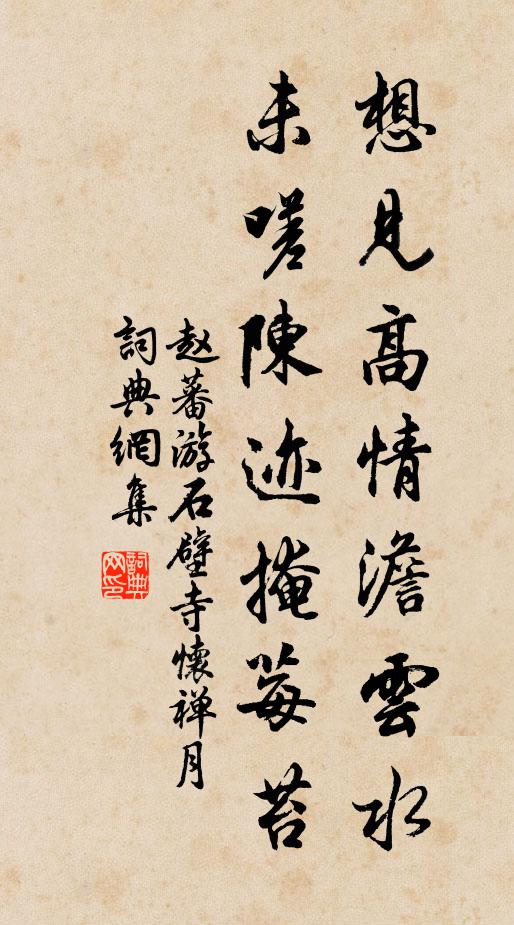 想見高情澹雲水
未嗟陳迹掩莓苔
赵蕃游石壁寺懷禅月
詞典網集
詞典网印